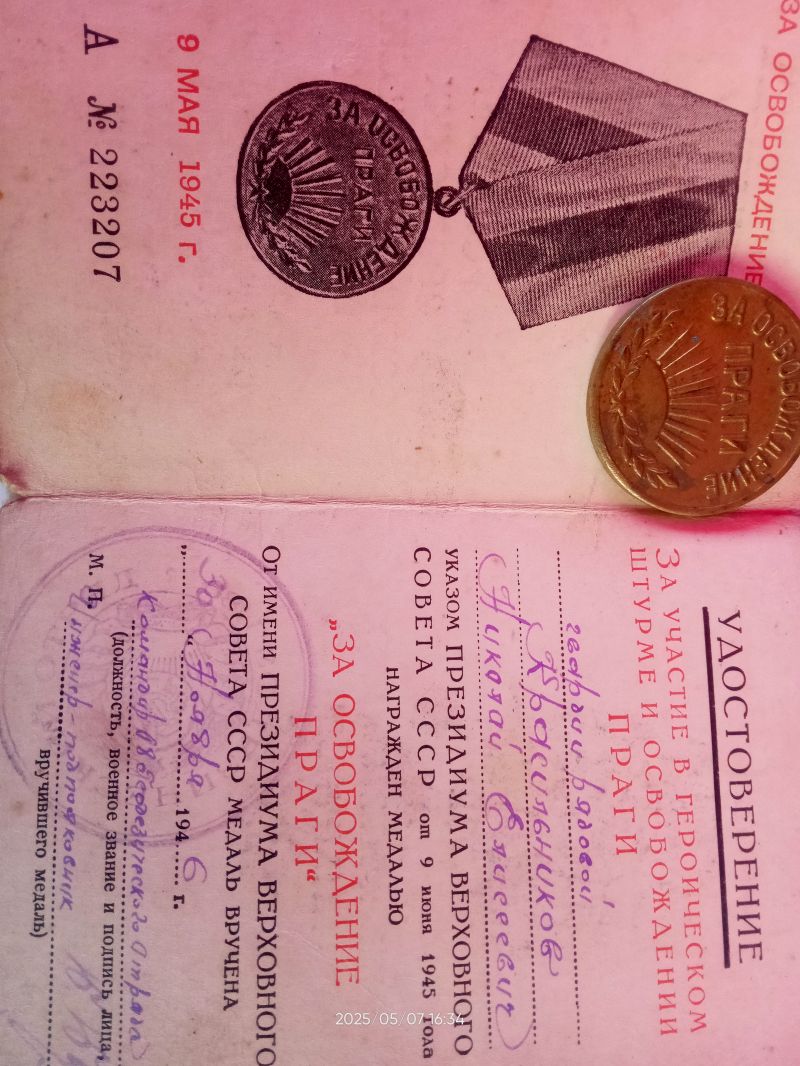 ЗА ОСВОБОЖДЕНИЕ
ЗА ОСВОБОЖДЕНИЕ
ПРАГИ
9 МАЯ 1945 г.
А № 223207
ЗА ОСВОБОЖДЕНИЕ
ПРАГИ
УДОСТОВЕРЕНИЕ
ЗА УЧАСТИЕ В ГЕРОИЧЕСКОМ
ШТУРМЕ И ОСВОБОЖДЕНИИ
ПРАГИ
гвардии рядовой
Красильников
Николай Елисеевич
УКАЗОМ ПРЕЗИДИУМА ВЕРХОВНОГО
СОВЕТА СССР от 9 июня 1945 года
НАГРАЖДЕН МЕДАЛЬЮ
„ЗА ОСВОБОЖДЕНИЕ
ПРАГИ“
От ИМЕНИ ПРЕЗИДИУМА ВЕРХОВНОГО
СОВЕТА СССР МЕДАЛЬ ВРУЧЕНА
„30“ Ноября 1946 г.
Командир
М. П. (должность, военное звание и подпись лица,
Инженер-подполковник
вручившего медаль)
2025/05/07 16:34